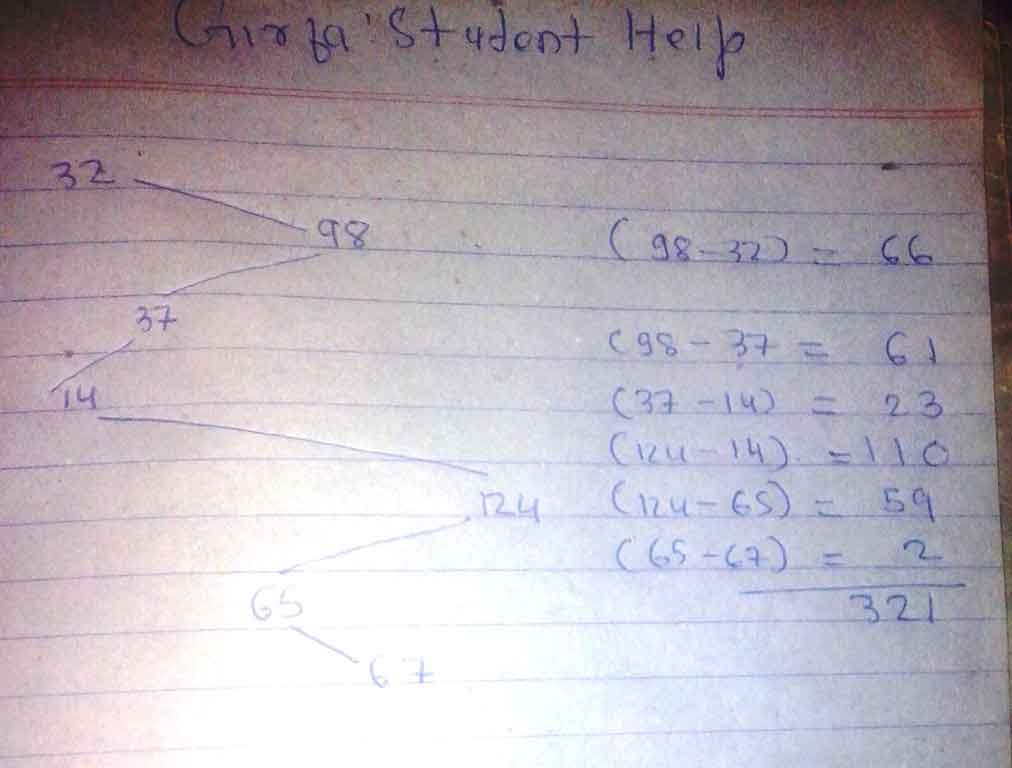 Girfa: Student Help
32
98 (98-32) = 66
37 (98 - 37 = 61
14 (37 -14) = 23
(124 - 14) = 110
124 (124 - 65) = 59
(65 - 67) = 2
65 321
67